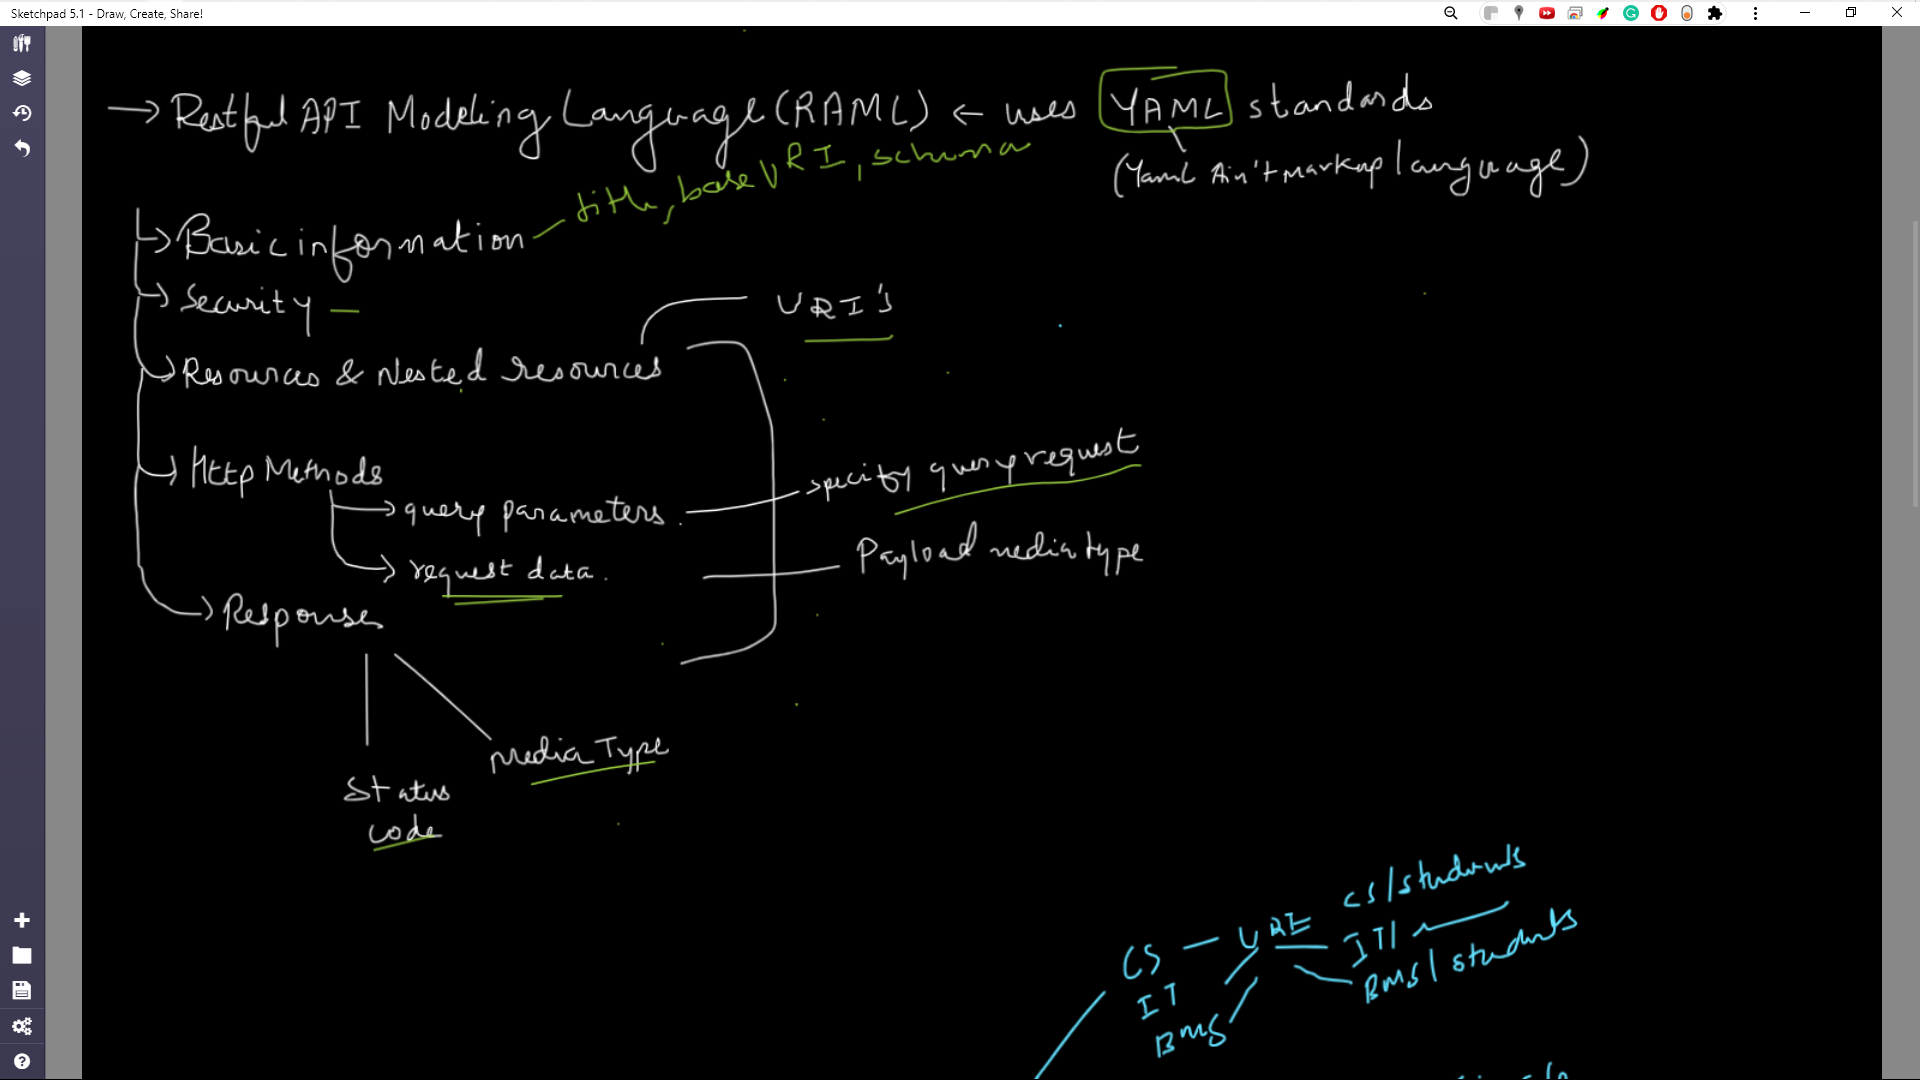 Sketchpad 5.1 - Draw, Create, Share!
→ Restful API Modeling Language (RAML) ← uses YAML standards
(Yaml Ain't markup language)
title, base URI, schema
→ Basic information
→ Security
URI's
→ Resources & Nested resources
→ Http Methods
→ query parameters. specify query request
→ request data. Payload media type
→ Responses
Media Type
Status
code
CS/students
CS — URI
IT/
IT
BMS/students
BMS